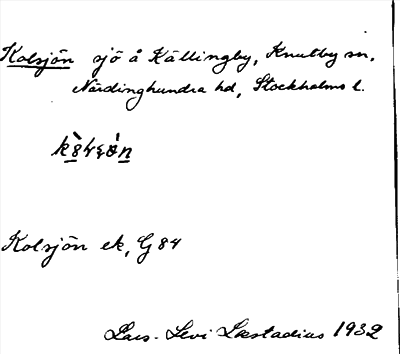 Kolsjön sjö å Källingby, Knutby sn,
Närdinghundra hd, Stockholms l.
Kolsjön ek, G 84
Lars-Levi Læstadius 1932